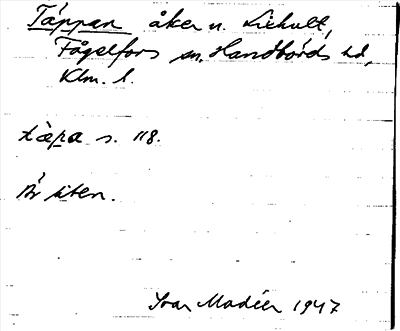 Täppan åker u. Liehult,
Fågelfors sn, Handbörds hd,
Klm. l.
tæpa s. 118.
Är liten.
Ivar Modéer 1947